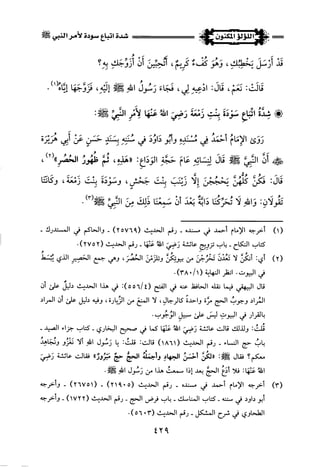 اللؤلؤ المكنون
شدة اتباع سودة لأمر النبي ﷺ
قَدْ أَرْسَلَ يَخْطُبُكِ، وَهُوَ كُفْءٌ كَرِيمٌ، أَتُحِبِّينَ أَنْ أُزَوِّجَكِ بِهِ؟
قَالَتْ: نَعَمْ، قَالَ: ادْعِيهِ لِي، فَجَاءَ رَسُولُ اللهِ ﷺ إِلَيْهِ، فَزَوَّجَهَا إِيَّاهُ(١).
شِدَّةُ اتِّبَاعِ سَوْدَةَ بِنْتِ زَمْعَةَ رَضِيَ اللهُ عَنْهَا لِأَمْرِ النَّبِيِّ ﷺ:
رَوَى الْإِمَامُ أَحْمَدُ فِي مُسْنَدِهِ وَأَبُو دَاوُدَ فِي سُنَنِهِ بِسَنَدٍ حَسَنٍ عَنْ أَبِي هُرَيْرَةَ
أَنَّ النَّبِيَّ ﷺ قَالَ لِنِسَائِهِ عَامَ حَجَّةِ الْوَدَاعِ: «هَذِهِ، ثُمَّ ظُهُورُ الْحُصْرِ»(٢)،
قَالَ: فَكُنَّ كُلُّهُنَّ يَحْجُجْنَ إِلَّا زَيْنَبَ بِنْتَ جَحْشٍ، وَسَوْدَةَ بِنْتَ زَمْعَةَ، وَكَانَتَا
تَقُولَانِ: وَاللهِ لَا تُحَرِّكُنَا دَابَّةٌ بَعْدَ أَنْ سَمِعْنَا ذَلِكَ مِنَ النَّبِيِّ ﷺ(٣).
(١) أخرجه الإمام أحمد في مسنده ـ رقم الحديث (٢٥٧٦٩) ـ والحاكم في المستدرك ـ
كتاب النكاح ـ باب تزويج عائشة رضي الله عنها ـ رقم الحديث (٢٧٥٢).
(٢) أي: أنكن لا تعدن تخرجن من بيوتكن وتلزمن الحصر، وهي جمع الحصير الذي يُبسط
في البيوت. انظر النهاية (٣٨٠/١).
قال البيهقي فيما نقله الحافظ عنه في الفتح (٥٥٦/٤): في هذا الحديث دليل على أن
المراد وجوب الحج مرة واحدة كالرجال، لا المنع من الزيارة، وفيه دليل على أن المراد
بالقرار في البيوت ليس على سبيل الوجوب.
قلتُ: ولذلك قالت عائشة رضي الله عنها كما في صحيح البخاري ـ كتاب جزاء الصيد ـ
باب حج النساء ـ رقم الحديث (١٨٦١) قالت: قلت: يا رسول الله ألا نغزو ونجاهد
معكم؟ فقال ﷺ: «لكن أحسن الجهاد وأجمله الحج حج مبرور» فقالت عائشة رضي
الله عنها: فلا أدع الحج بعد إذا سمعت هذا من رسول الله ﷺ.
(٣) أخرجه الإمام أحمد في مسنده ـ رقم الحديث (٢١٩٠٥) ـ (٢٦٧٥١) ـ وأخرجه
أبو داود في سننه ـ كتاب المناسك ـ باب فرض الحج ـ رقم الحديث (١٧٢٢) ـ وأخرجه
الطحاوي في شرح المشكل ـ رقم الحديث (٥٦٠٣).
٤٢٩